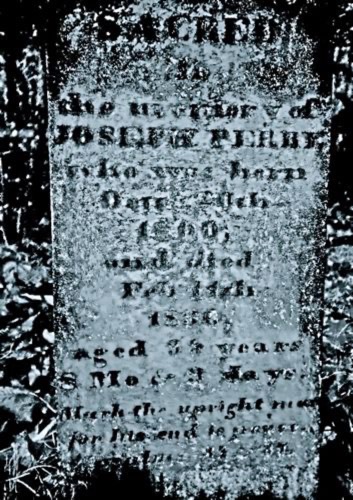 SACRED
to
the memory of
JOSEPH PERRY
who was born
20th
and died
Feb
aged years
8 Mo & days.
Mark the upright man
for his end is peace.